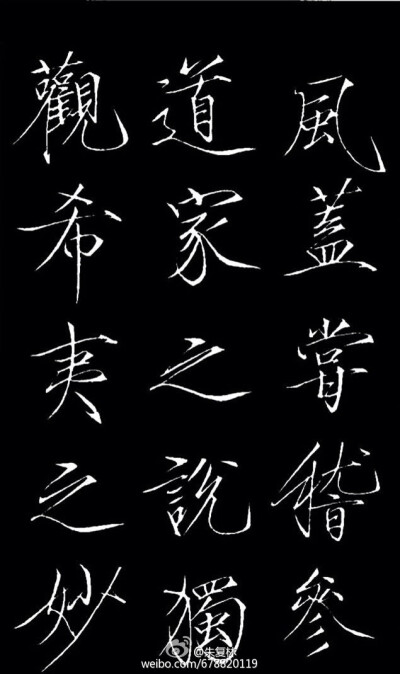 風蓋嘗稽參
道家之說獨
觀希夷之妙
@朱复栋
weibo.com/678820119